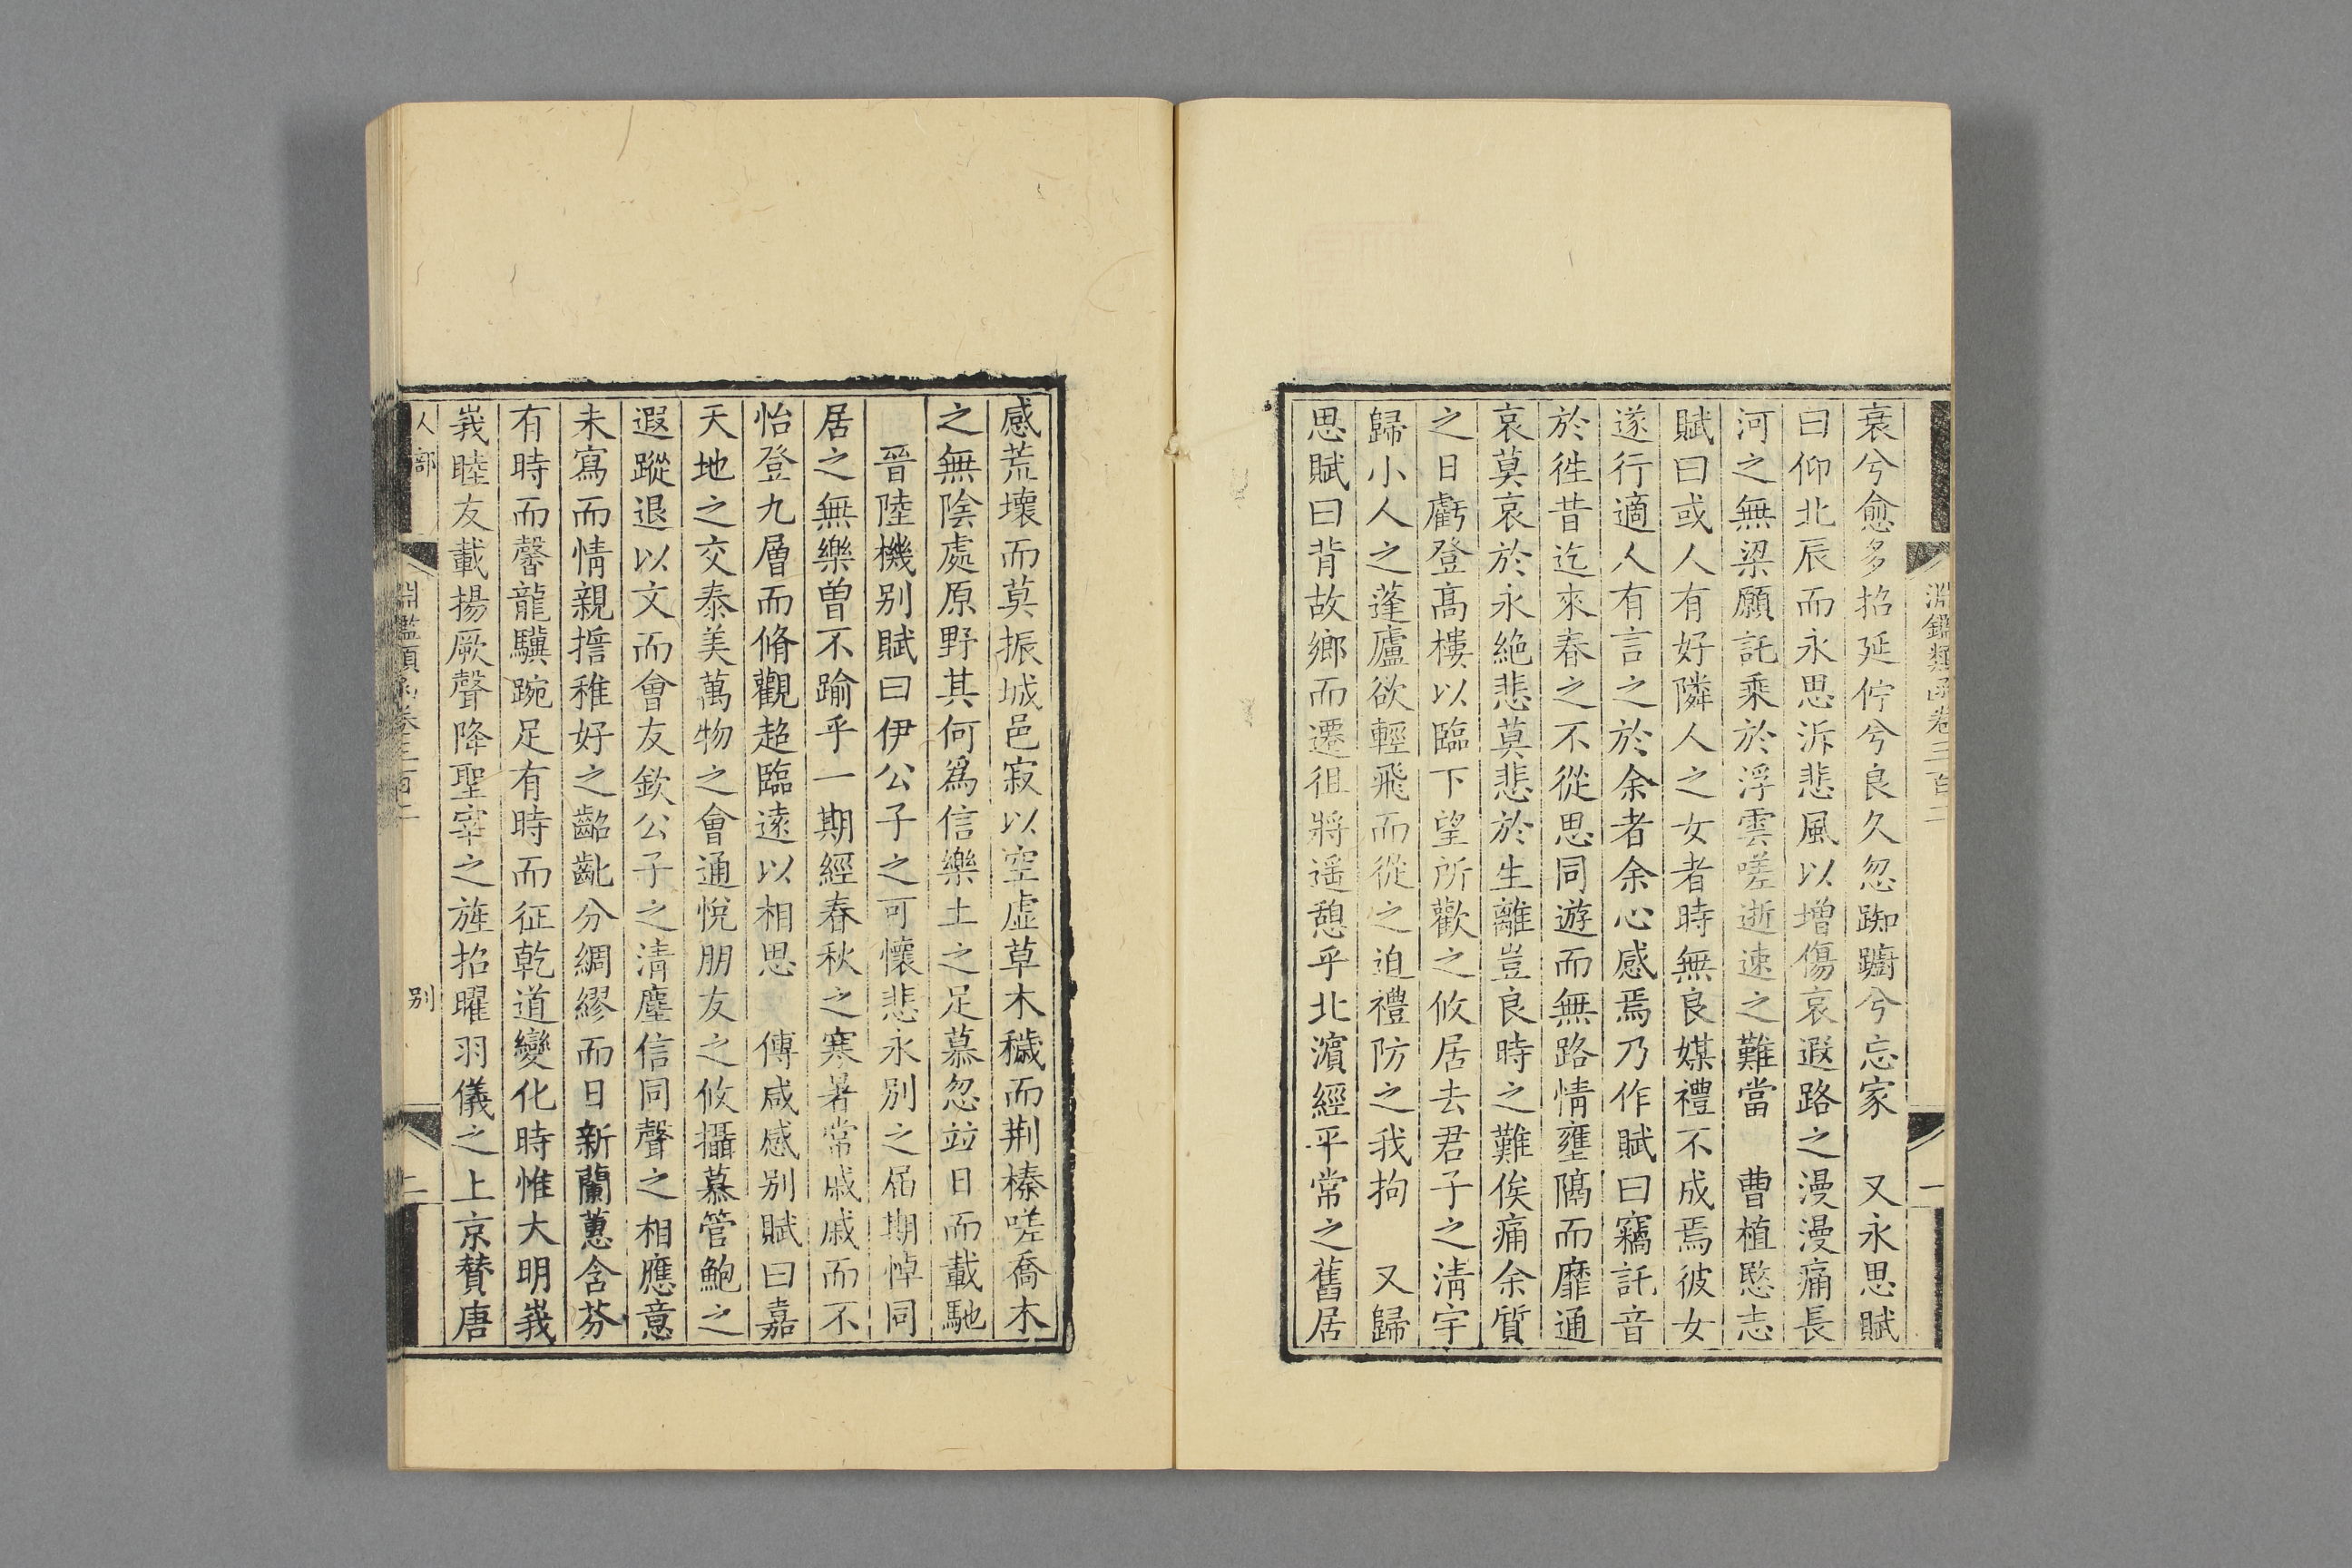 淵鑑類函卷三百二
一
衰兮愈多招延佇兮良久忽踟躕兮忘家　又永思賦
曰仰北辰而永思泝悲風以增傷哀遐路之漫漫痛長
河之無梁願託乘於浮雲嗟逝速之難當　曹植愍志
賦曰或人有好隣人之女者時無良媒禮不成焉彼女
遂行適人有言之於余者余心感焉乃作賦曰竊託音
於徃昔迄來春之不從思同遊而無路情壅隔而靡通
哀莫哀於永絶悲莫悲於生離豈良時之難俟痛余質
之日虧登髙樓以臨下望所歡之攸居去君子之淸宇
歸小人之蓬廬欲輕飛而從之迫禮防之我拘　又歸
思賦曰背故鄉而遷徂將遥憩乎北濵經平常之舊居
感荒壞而莫振城邑寂以空虛草木穢而荆榛嗟喬木
之無陰處原野其何爲信樂土之足慕忽竝日而載馳
晉陸機别賦曰伊公子之可懷悲永别之屆期悼同
居之無樂曽不踰乎一期經春秋之寒暑常戚戚而不
怡登九層而脩觀超臨逺以相思　傅咸感别賦曰嘉
天地之交泰美萬物之會通悅朋友之攸攝慕管鮑之
遐蹤退以文而會友欽公子之淸塵信同聲之相應意
未寫而情親揩稚好之齠齔分綢繆而日新蘭蕙含芬
有時而馨龍驥踠足有時而征乾道變化時惟大明峩
峩睦友載揚厥聲降聖宰之旌招曜羽儀之上京賛唐
人部
淵鑑類函卷三百二
别
二